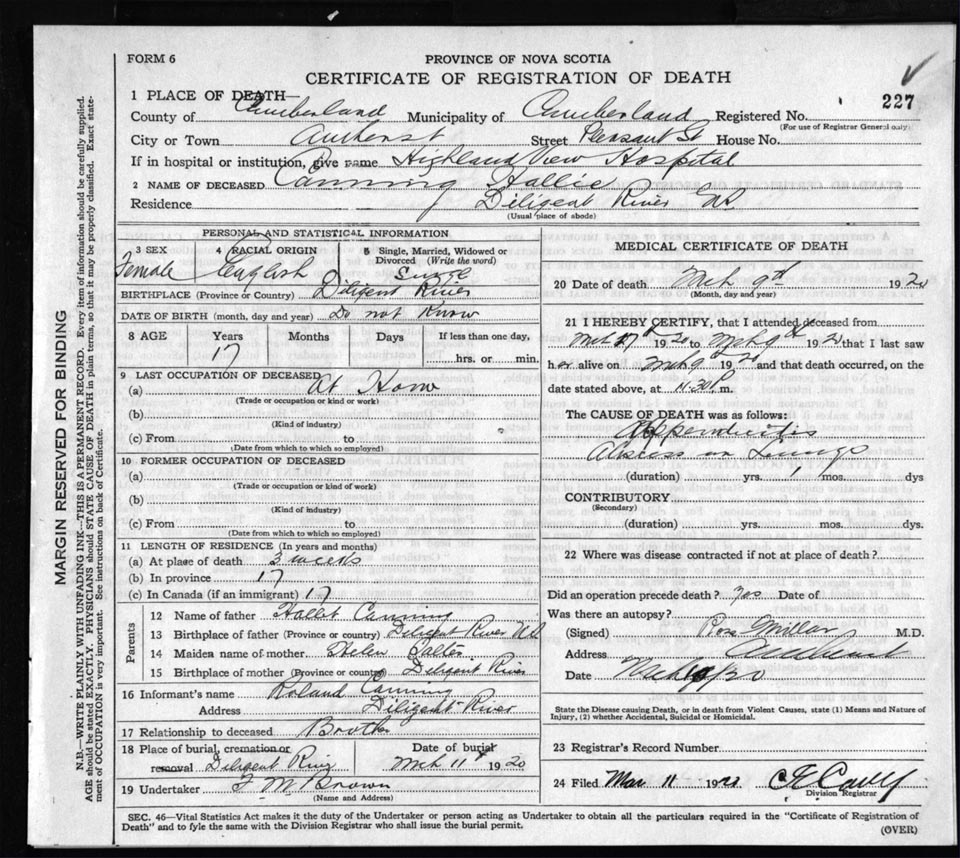 FORM 6
PROVINCE OF NOVA SCOTIA
CERTIFICATE OF REGISTRATION OF DEATH
227
1 PLACE OF DEATH—
County of Cumberland Municipality of Cumberland Registered No.
(For use of Registrar General only)
City or Town Amherst Street Pleasant St House No.
If in hospital or institution, give name Highland View Hospital
2 NAME OF DECEASED Canning Hallie
Residence Diligent River NS
(Usual place of abode)
PERSONAL AND STATISTICAL INFORMATION
3 SEX 4 RACIAL ORIGIN 5 Single, Married, Widowed or Divorced (Write the word)
Female English Single
BIRTHPLACE (Province or Country) Diligent River
DATE OF BIRTH (month, day and year) Do not Know
8 AGE Years Months Days If less than one day,
17 hrs. or min.
9 LAST OCCUPATION OF DECEASED
(a) At Home
(Trade or occupation or kind of work)
(b)
(Kind of industry)
(c) From to
(Date from which to which so employed)
10 FORMER OCCUPATION OF DECEASED
(a)
(Trade or occupation or kind of work)
(b)
(Kind of industry)
(c) From to
(Date from which to which so employed)
11 LENGTH OF RESIDENCE (In years and months)
(a) At place of death 3 weeks
(b) In province 17
(c) In Canada (if an immigrant) 17
Parents
12 Name of father Hallet Canning
13 Birthplace of father (Province or country) Diligent River NS
14 Maiden name of mother. Helen Salter
15 Birthplace of mother (Province or country) Diligent River
16 Informant's name Roland Canning
Address Diligent River
17 Relationship to deceased Brother
18 Place of burial, cremation or removal Diligent River Date of burial Mch 11th 1920
19 Undertaker F M Brown
(Name and Address)
MEDICAL CERTIFICATE OF DEATH
20 Date of death Mch 9th 1920
(Month, day and year)
21 I HEREBY CERTIFY, that I attended deceased from
1920 to Mch 9th 1920 that I last saw
her alive on Mch 9th 1920 and that death occurred, on the
date stated above, at 11.30 P m.
The CAUSE OF DEATH was as follows:
Appendicitis
Abscess on Lungs
(duration) yrs. 1 mos. dys
CONTRIBUTORY
(Secondary)
(duration) yrs. mos. dys.
22 Where was disease contracted if not at place of death?
Did an operation precede death? yes Date of
Was there an autopsy?
(Signed) Ross Millar M.D.
Address Amherst
Date
State the Disease causing Death, or in death from Violent Causes, state (1) Means and Nature of
Injury, (2) whether Accidental, Suicidal or Homicidal.
23 Registrar's Record Number
24 Filed Mar 11 192
Division Registrar
SEC. 46—Vital Statistics Act makes it the duty of the Undertaker or person acting as Undertaker to obtain all the particulars required in the "Certificate of Registration of
Death" and to fyle the same with the Division Registrar who shall issue the burial permit.
(OVER)
MARGIN RESERVED FOR BINDING
N.B.—WRITE PLAINLY WITH UNFADING INK—THIS IS A PERMANENT RECORD. Every item of information should be carefully supplied.
AGE should be stated EXACTLY. PHYSICIANS should STATE CAUSE OF DEATH in plain terms, so that it may be properly classified. Exact state-
ment of OCCUPATION is very important. See instructions on back of Certificate.